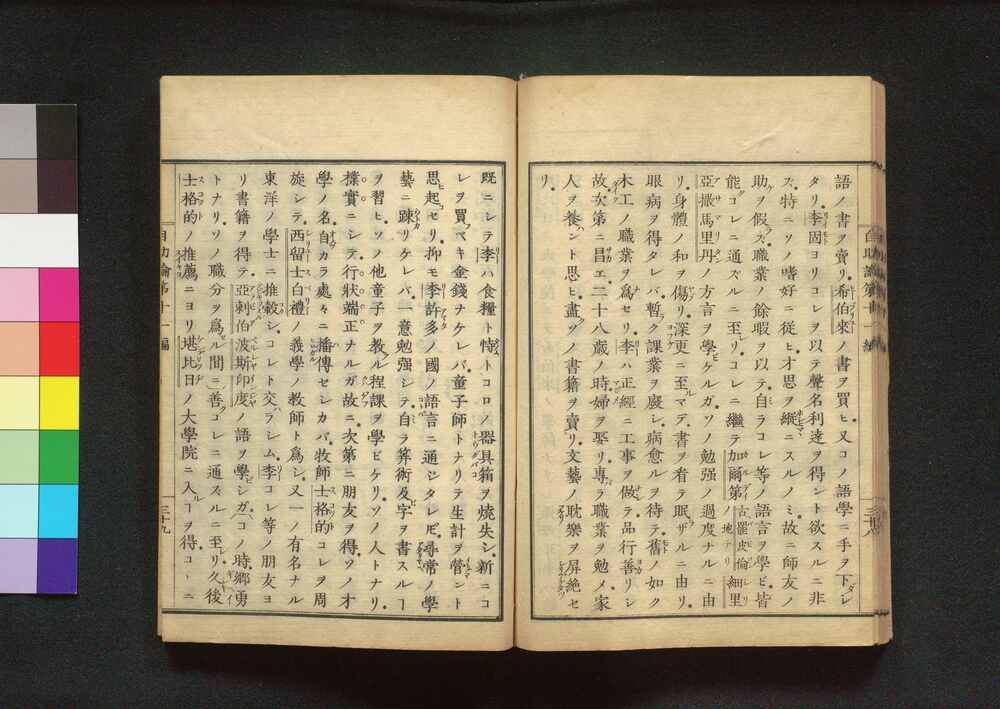 語ノ書ヲ賣リ希伯來ノ書ヲ買ヒ又コノ語學ニ手ヲ下シ
タリ李固ヨリコレヲ以テ聲名利達ヲ得ント欲スルニ非
ズ特ニソノ嗜好ニ従ヒ才思ヲ縦ニスルノミ故ニ師友ノ
助ヲ假ラズ職業ノ餘暇ヲ以テ自ラコレ等ノ語言ヲ學ビ皆
能コレニ通ズルニ至リコレニ繼テ加爾第ノ地ナリ古羅皮倫細里
亞撒馬里丹ノ方言ヲ學ビケルガソノ勉强ノ過度ナルニ由
リ身體ノ和ヲ傷リ深更ニ至ルマデ書ヲ看テ眠ザルニ由リ
眼病ヲ得タレバ暫ク課業ヲ廢シ病愈ルヲ待テ舊ノ如ク
木工ノ職業ヲ爲セリ李ハ正經ニ工事ヲ做テ品行善リシ
故次第ニ昌エ二十八歳ノ時婦ヲ娶リ專ラ職業ヲ勉メ家
人ヲ養ハント思ヒ盡クソノ書籍ヲ賣リ文藝ノ耽樂ヲ屏絶セ
リ
自助論第十一編
三十八
既ニシテ李ハ食糧ト恃トコロノ器具箱ヲ燒失シ新ニコ
レヲ買フベキ金錢ナケレバ童子師トナリテ生計ヲ營ント
思ヒ起セリ抑モ李許多ノ國ノ語言ニ通ジタレドモ尋常ノ學
藝ニ踈リケレバ一意勉强シテ自ラ算術及ビ字ヲ書スルコト
ヲ習ヒソノ他童子ヲ教ル程課ヲ學ビケリソノ人トナリ
撲實ニシテ行狀端正ナルガ故ニ次第ニ朋友ヲ得ソノ才
學ノ名自カラ處々ニ播傳セシカバ牧師士格的コレヲ周
旋シテ西留士白禮ノ義學ノ教師ト爲シ又一ノ有名ナル
東洋ノ學士ニ推轂シコレト交ラシム李コレ等ノ朋友ヨ
リ書籍ヲ得テ亞剌伯波斯印度ノ語ヲ學ビシガコノ時郷勇
トナリソノ職分ヲ爲ル間ニ善クコレニ通ズルニ至リ久後
士格的ノ推薦ニヨリ堪比日ノ大學院ニ入ルコトヲ得コヽニ
自助論第十一編
三十九